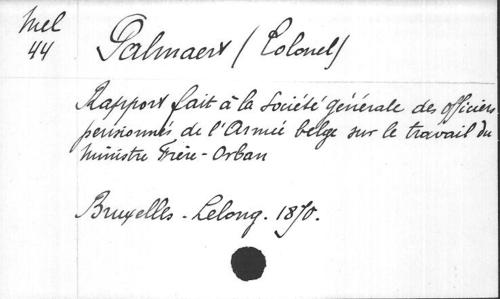 Mel
44
Palmaert (Colonel)
Rapport fait à la Société générale des officiers
pensionnés de l'Armée belge sur le travail du
Ministre Frère-Orban
Bruxelles - Lelong. 1870.